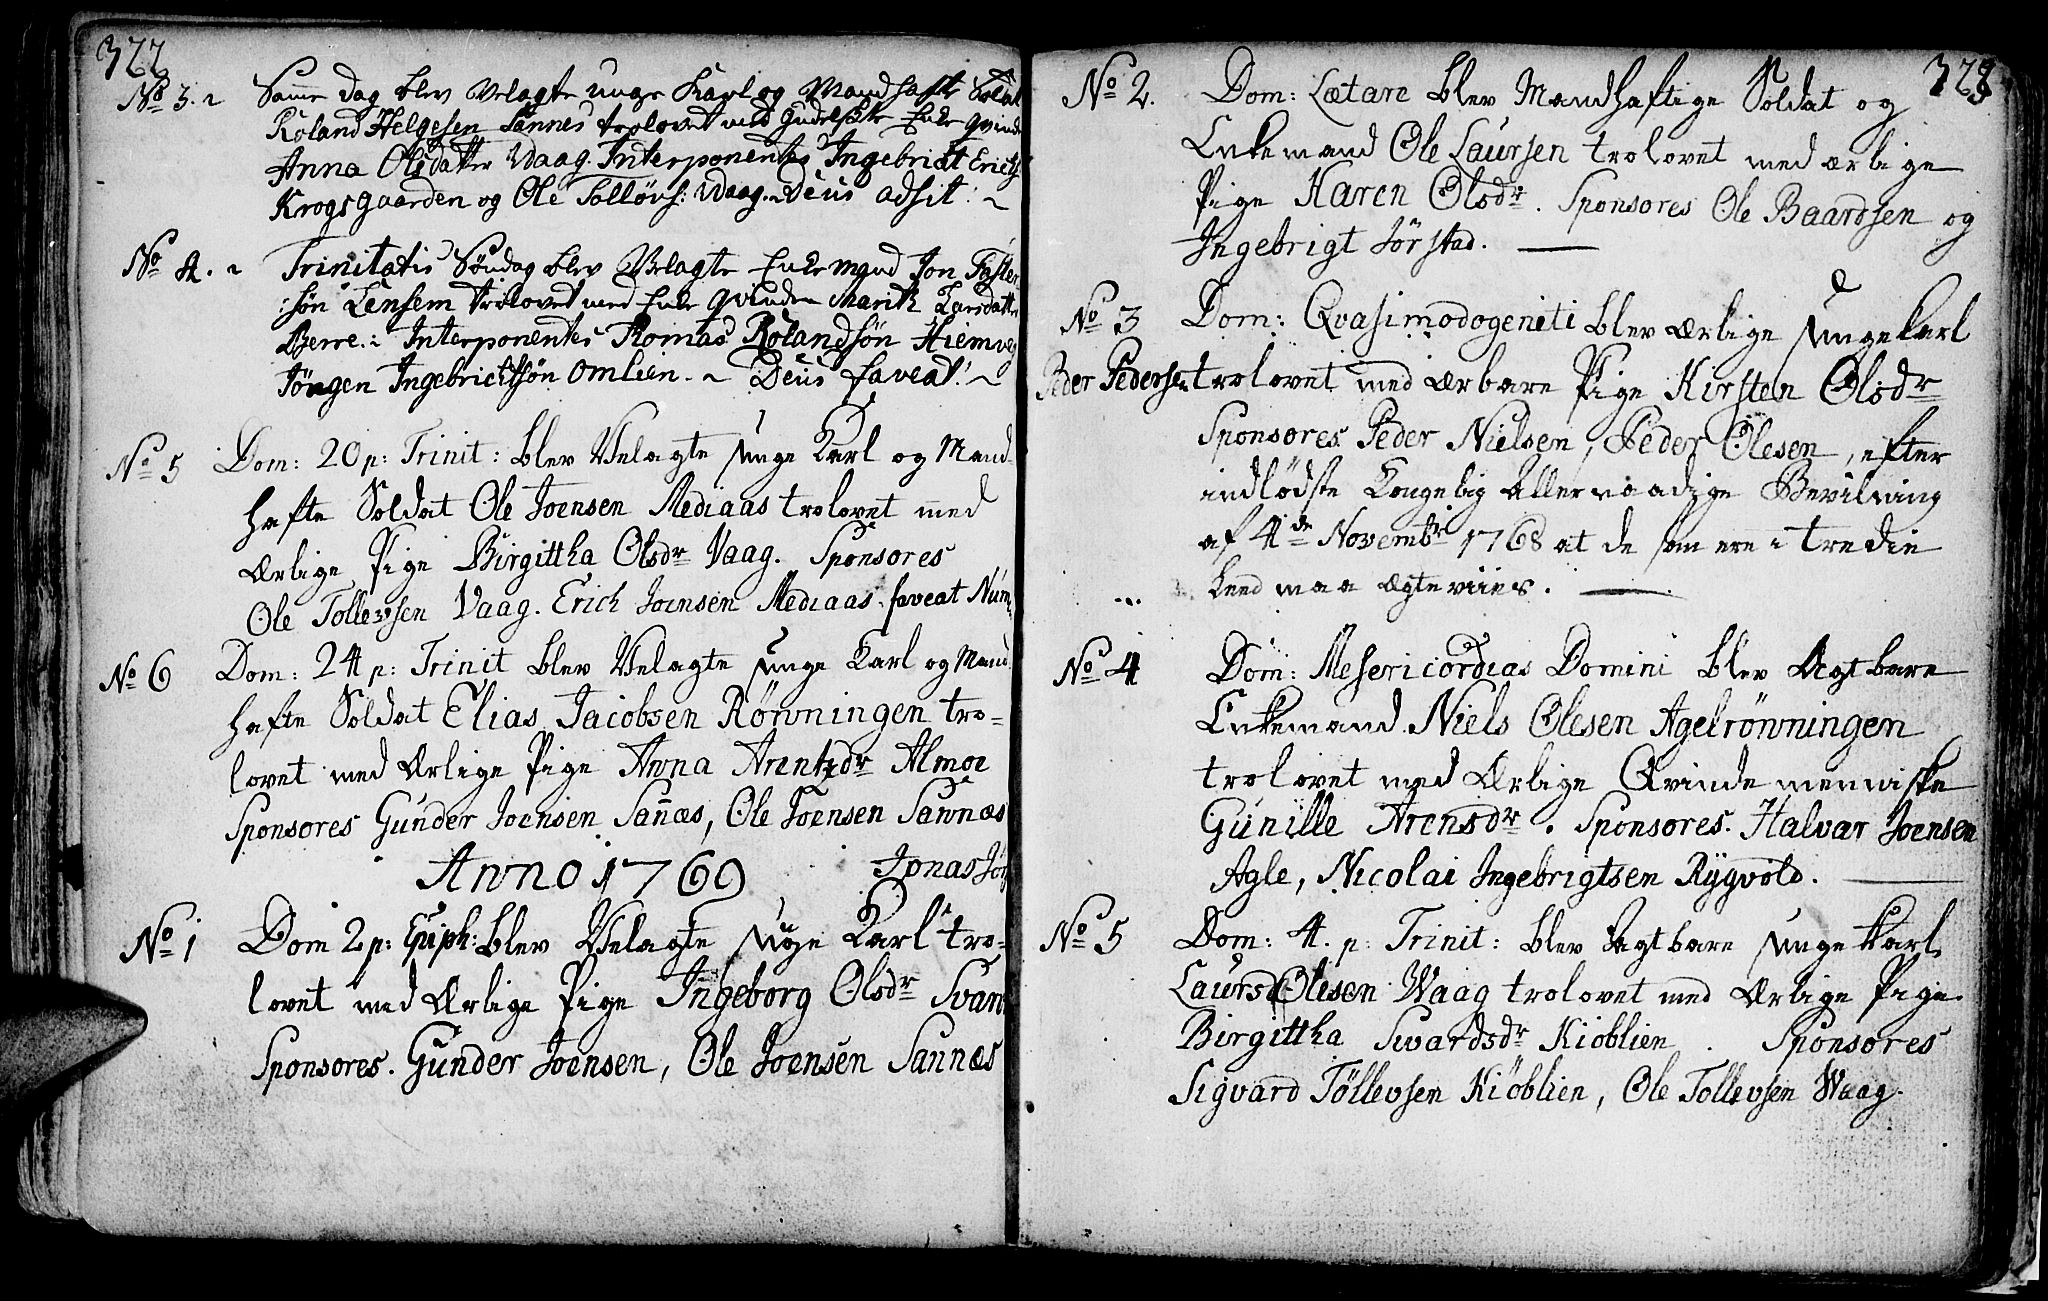 322
No 3. Samme dag blev Velagte unge Karl og Mandhafte Soldat
Roland Helgesen Sannes trolovet med Gudelskte Enke Qvinde
Anna Olsdatter Vaag. Interponentes Ingebrict Erichs:
Krogsgaarden og Ole Tolløvs: Vaag. Deus adsit:
No 4. Trinitatis Søndag blev Velagte Enkemand Jon
:søn Lensem trolovet med Enke Qvinden Marith Larsdatter
Berre: Interponentes Tomas Rolandsøn
Jörgen Ingebrichtsøn Omlien. Deus faveat!
No 5 Dom: 20 p: Trinit: blev Velagte unge Karl og Mand-
hafte Soldat Ole Joensen Mediaas trolovet med
Ærlige Pige Birgittha Olsdr Vaag. Sponsores
Ole Tollevsen Vaag. Erich Joensen Mediaas. faveat Num:
No 6 Dom: 24 p: Trinit blev Velagte unge Karl og Mand
hafte Soldat Elias Jacobsen Rønningen tro-
lovet med Ærlige Pige Anna Arentsdr Almoe
Sponsores Gunder Joensen Sañæs, Ole Joensen Sannæs
Anno 1769 Jonas Jör
No 1 Dom 2 p: Epiph: blev Velagte unge Karl tro-
lovet med Ærlige Pige Ingeborg Olsdr
Sponsores. Gunder Joensen, Ole Joensen Sannæs
323
No 2. Dom: Lætare blev Mandhaftige Soldat og
Enkemand Ole Laursen trolovet med ærlige
Pige Karen Olsdr. Sponsores Ole Baardsen og
Ingebrigt Sörstad.
No 3 Dom: Qvasimodogeniti blev Ærlige unge Karl
Peder Pedersen trolovet med Ærbare Pige Kirsten Olsdr
Sponsores Peder Nielsen, Peder Olesen, efter
indlödste Kongelig allernaadige Bevilning
af 4de Novembr 1768 at de som ere i tredie
Leed maa ægteviies.
No 4 Dom: Mesericordias Domini blev Agtbare
Enkemand Niels Olesen Agelrønningen
trolovet med Ærlige Qvindemenniske
Gunille Arensdr. Sponsores. Halvar Joensen
Agle, Nicolai Ingebrigtsen Rygvold.
No 5 Dom: 4. p: Trinit: blev Agtbare unge Karl
Laurs Olesen Waag trolovet med Ærlige Pige
Birgittha Sivardsdr Kiöblien. Sponsores
Sigvard Töllevsen Kiöblien, Ole Tollevsen Waag.